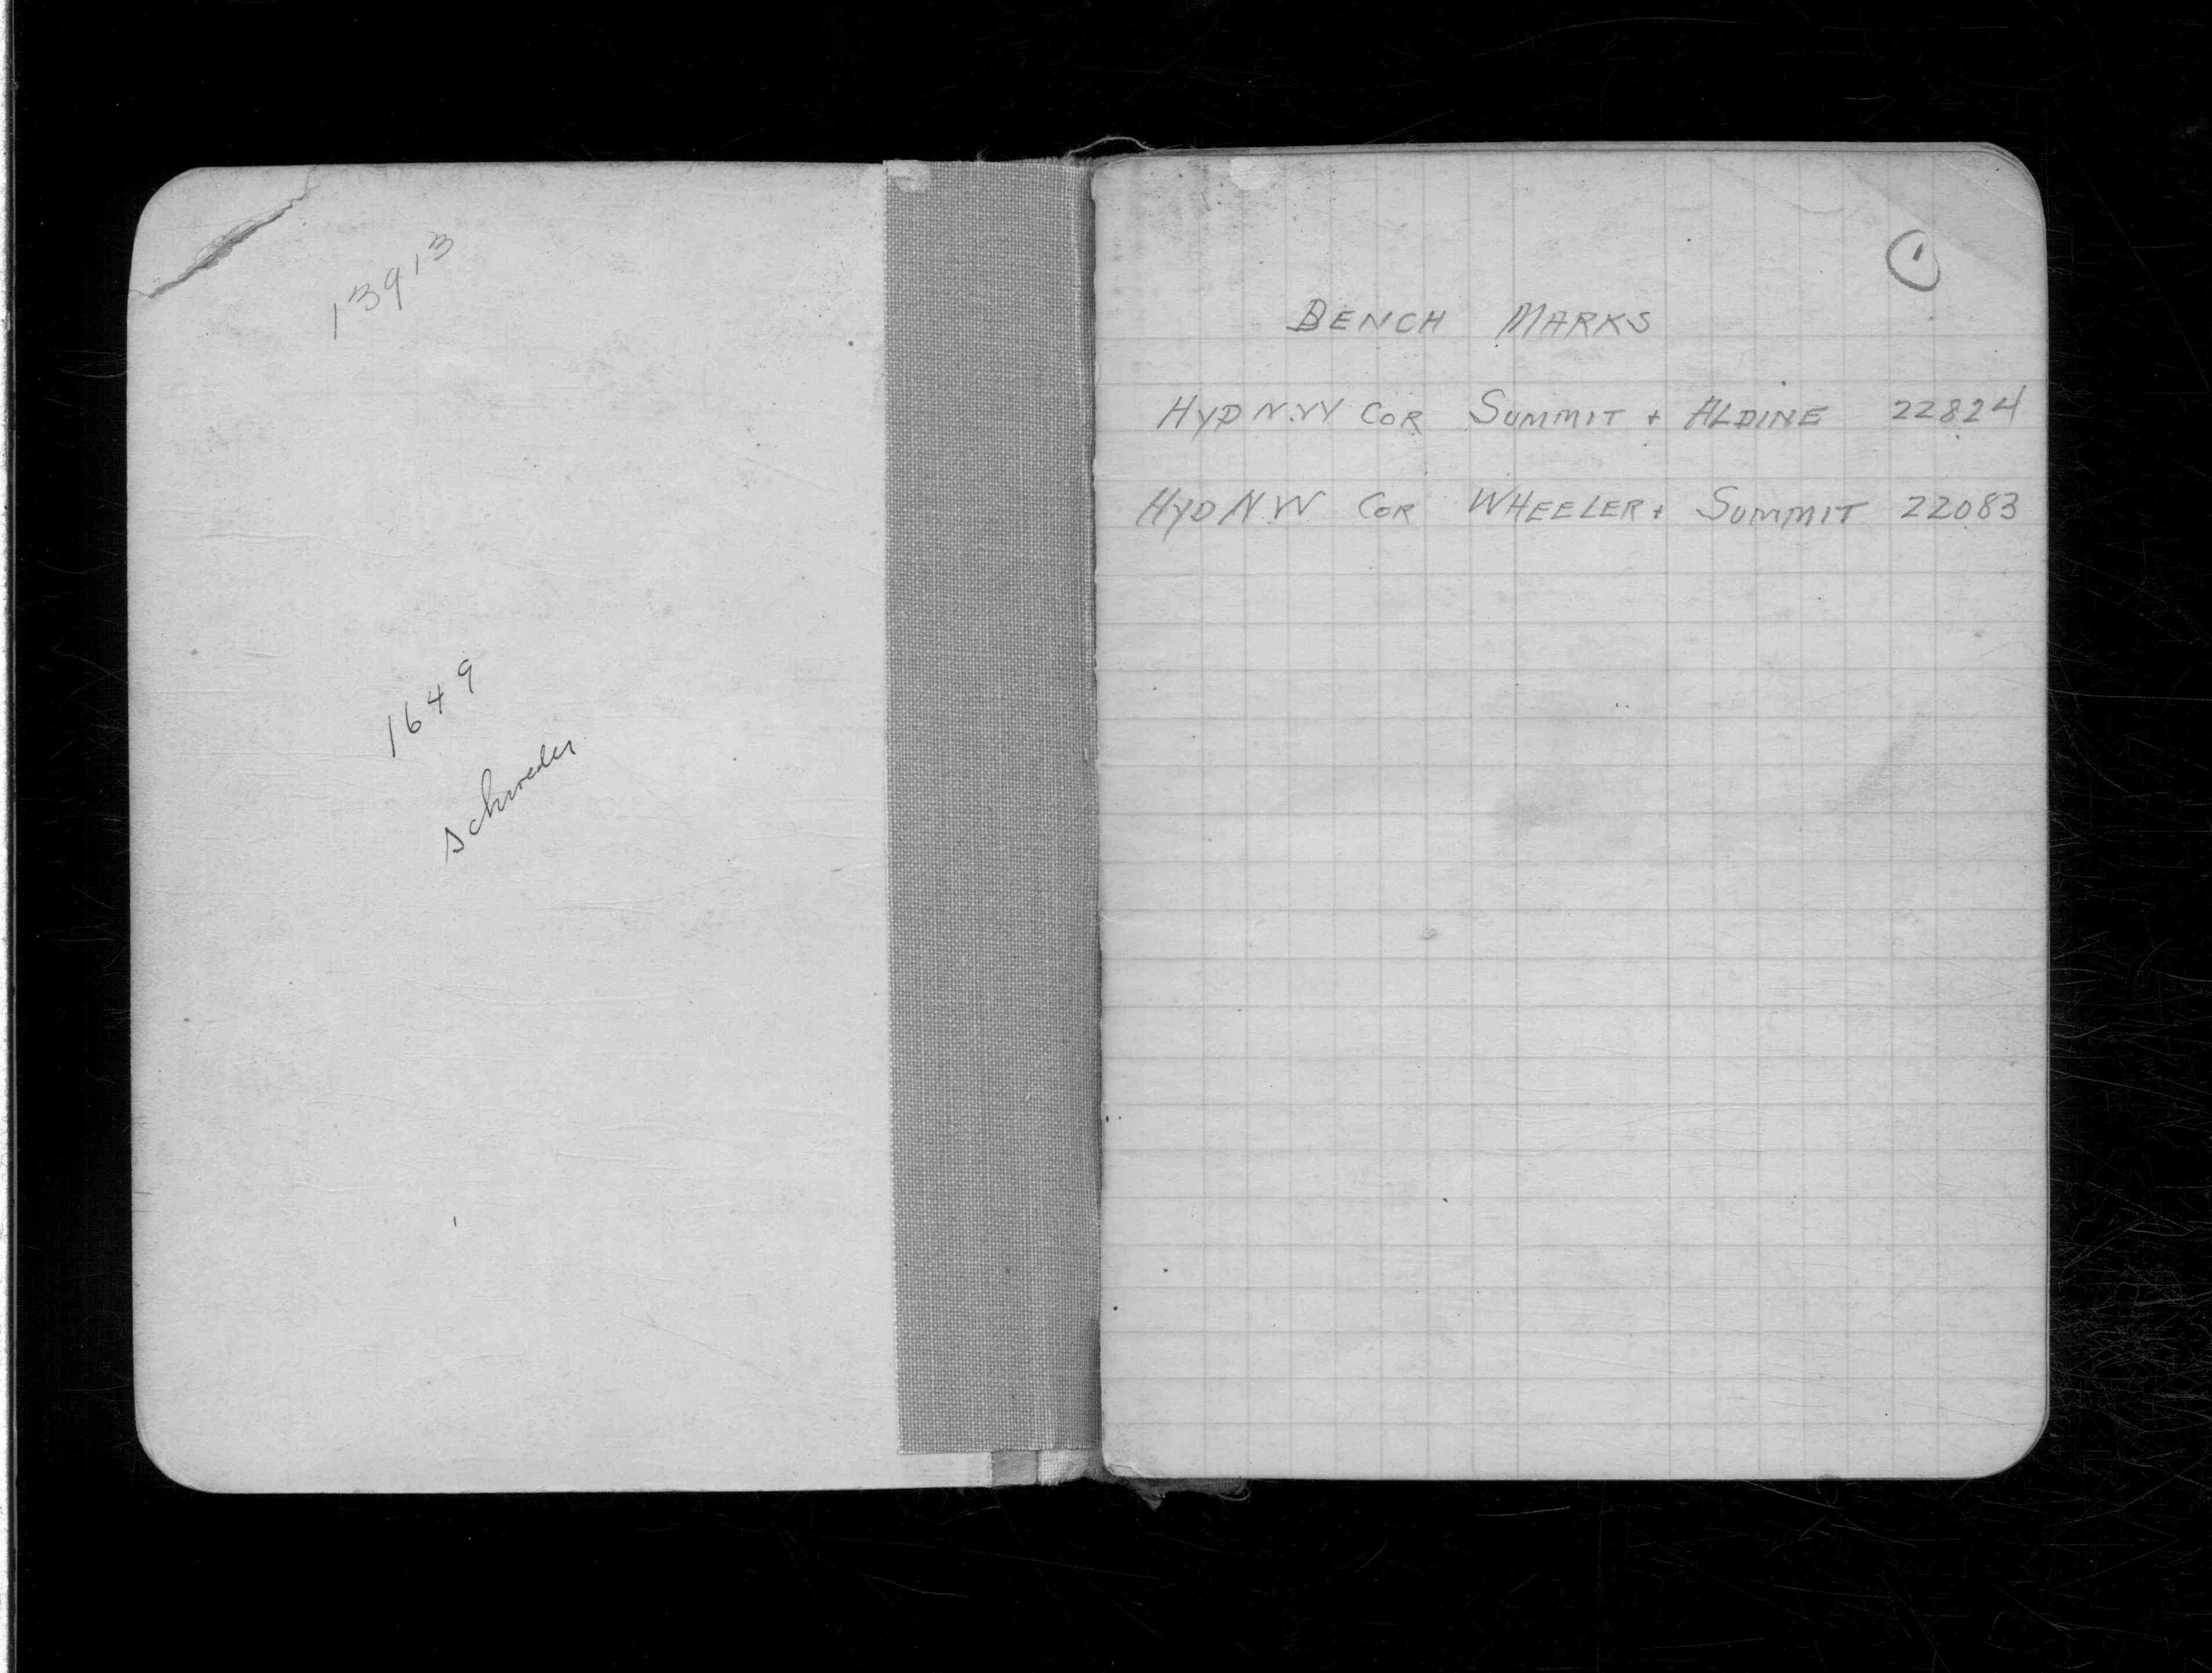 13913
1649
Schroeder
1
BENCH MARKS
HYD N.W COR SUMMIT + ALDINE 22824
HYD N.W COR WHEELER + SUMMIT 22083